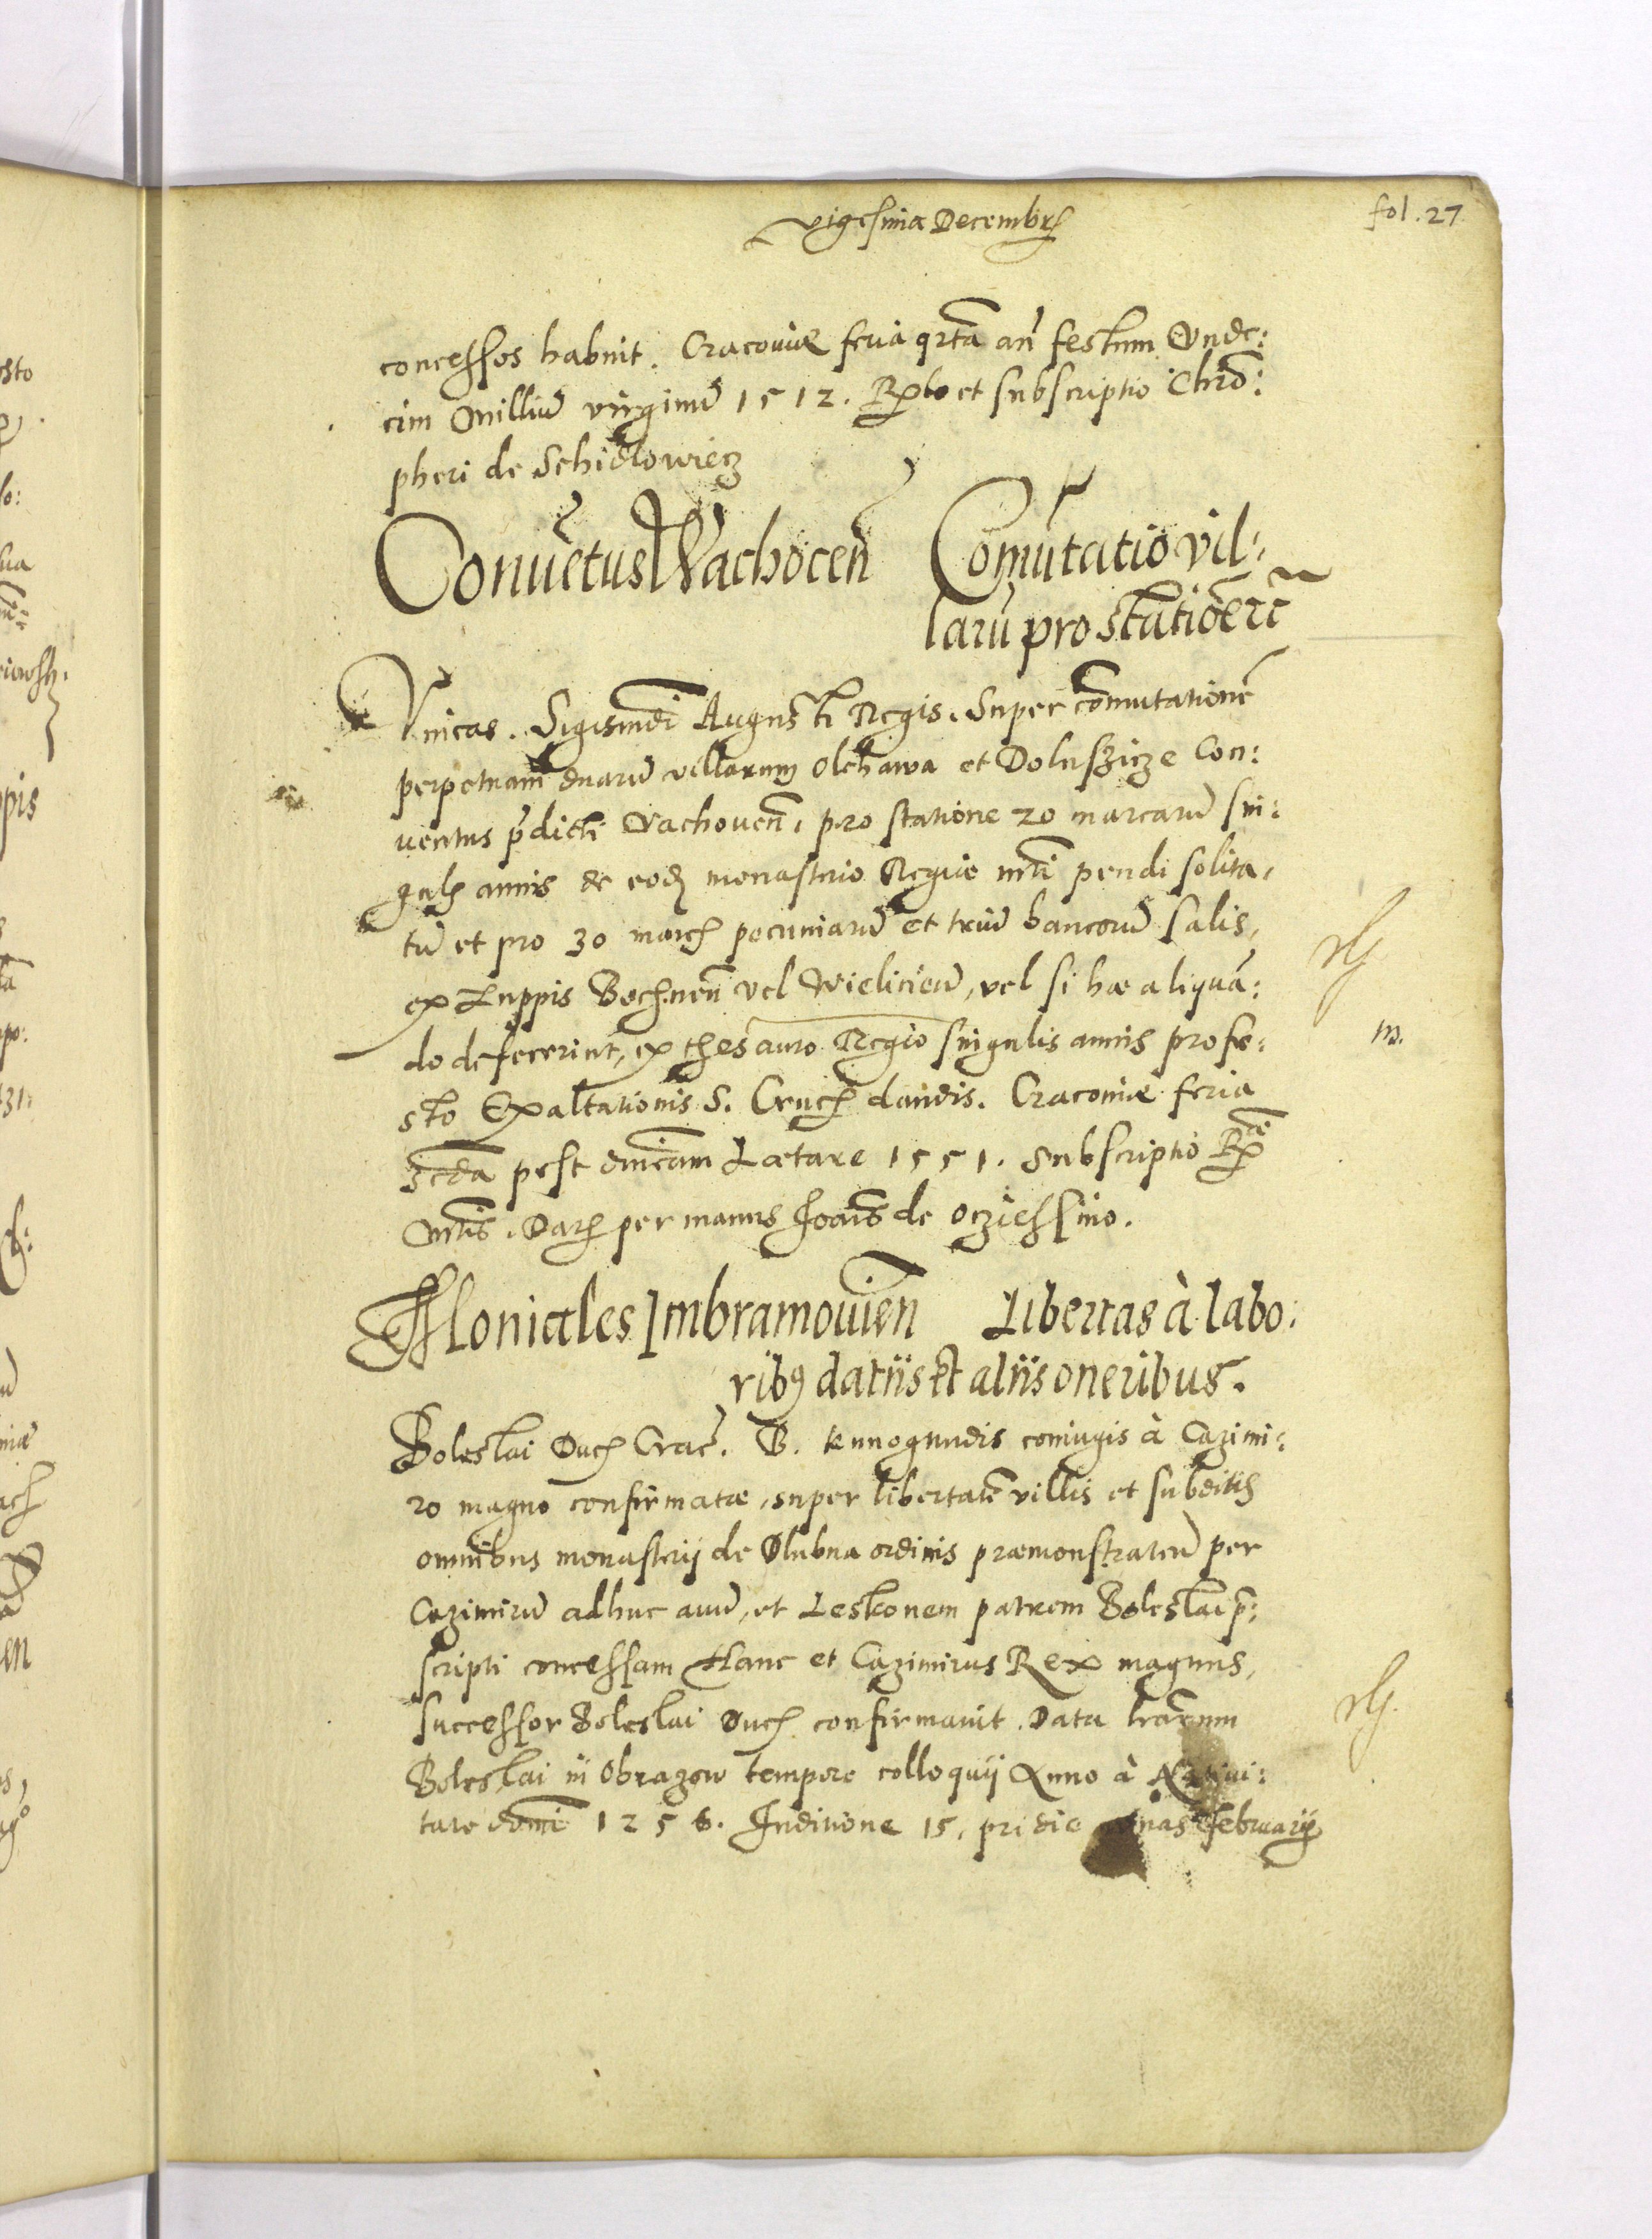 Vigesima Decembris
fol. 27
concessos habuit. Cracoviæ feria qrta añ festum Unde:
cim Milliũ virginũ 1512. et subscriptio Chrõ:
pheri de Schidlowiecz
Conuẽtus Wachoceñ Comũtatio vil:
larũ pro stationẽ etc̃
Vnicas. Sigismũdi Augusti Regis. Super cõmutationẽ
perpetuam duarũ villarum Olchawa et Doluszicze Con:
uentus p̃dicti Vachoceñ, pro statione 20 marcarũ sin:
gulis annis de eodẽ monasterio Regiæ mti pendi solita,
tũ et pro 30 marcis pecuniarũ et triũ bancorũ salis,
ex Zuppis Bochneñ vel Wieliciẽ, vel si hæ aliquã:
do defecerint, ex thesauro Regio singulis annis pro fe:
m.
sto Exaltationis S. Crucis dandis. Cracoviæ feria
2cda post dnicam Lætare 1551. Subscriptio Ræ
Mtis. Datis per manus Joañis de Ocziessino.
Moniales Imbramouieñ Libertas à labo:
ribus datiis et aliis oneribus.
Boleslai Ducis Crac̃. B. Kunegundis coniugis à Cazimi:
ro magno confirmatæ, super libertatẽ villis et subditis
omnibus monasterij de Dlubna ordinis præmonstrateñ per
Cazimirũ adhuc auũ, et Leskonem patrem Boleslai p̃:
scripti concessam Hanc et Cazimirus Rex magnus,
successor Boleslai Ducis confirmauit. Data lrãrum
Boleslai in Obrazow tempore colloquij Anno à Natiui:
tate domĩ 1256. Inditione 15, pridie nonas februarij